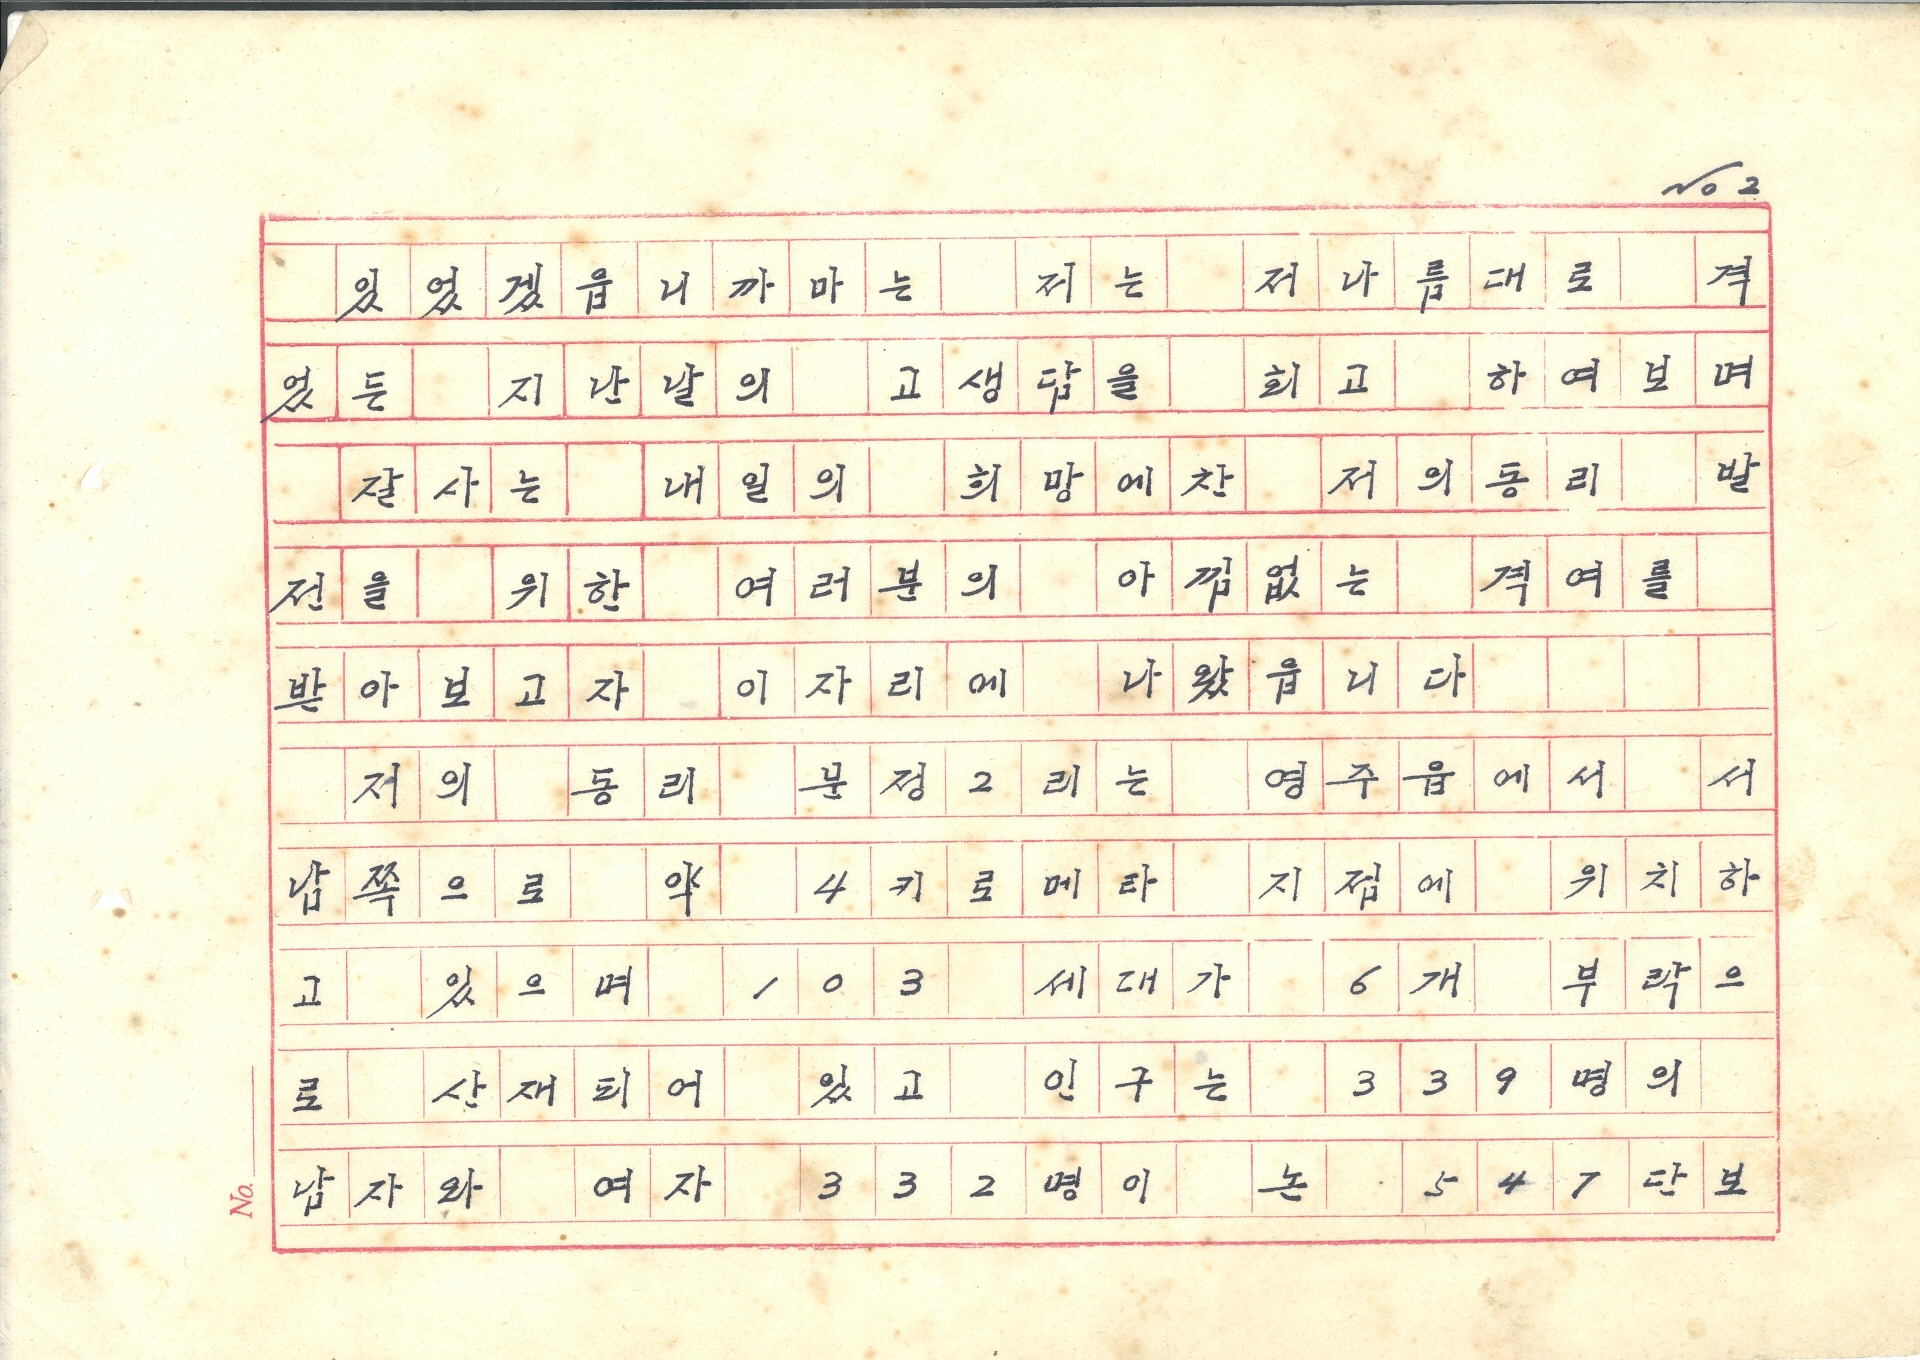 No 2
있었겠읍니까마는 저는 저나름대로 격
었든 지난날의 고생담을 회고 하여보며
잘사는 내일의 희망에찬 저의동리 발
전을 위한 여러분의 아낌없는 격여를
받아보고자 이자리에 나왔읍니다
저의 동리 문정2리는 영주읍에서 서
남쪽으로 약 4키로메타 지점에 위치하
고 있으며 103 세대가 6개 부락으
로 산재되어 있고 인구는 339명의
남자와 여자 332명이 논 547단보
No.